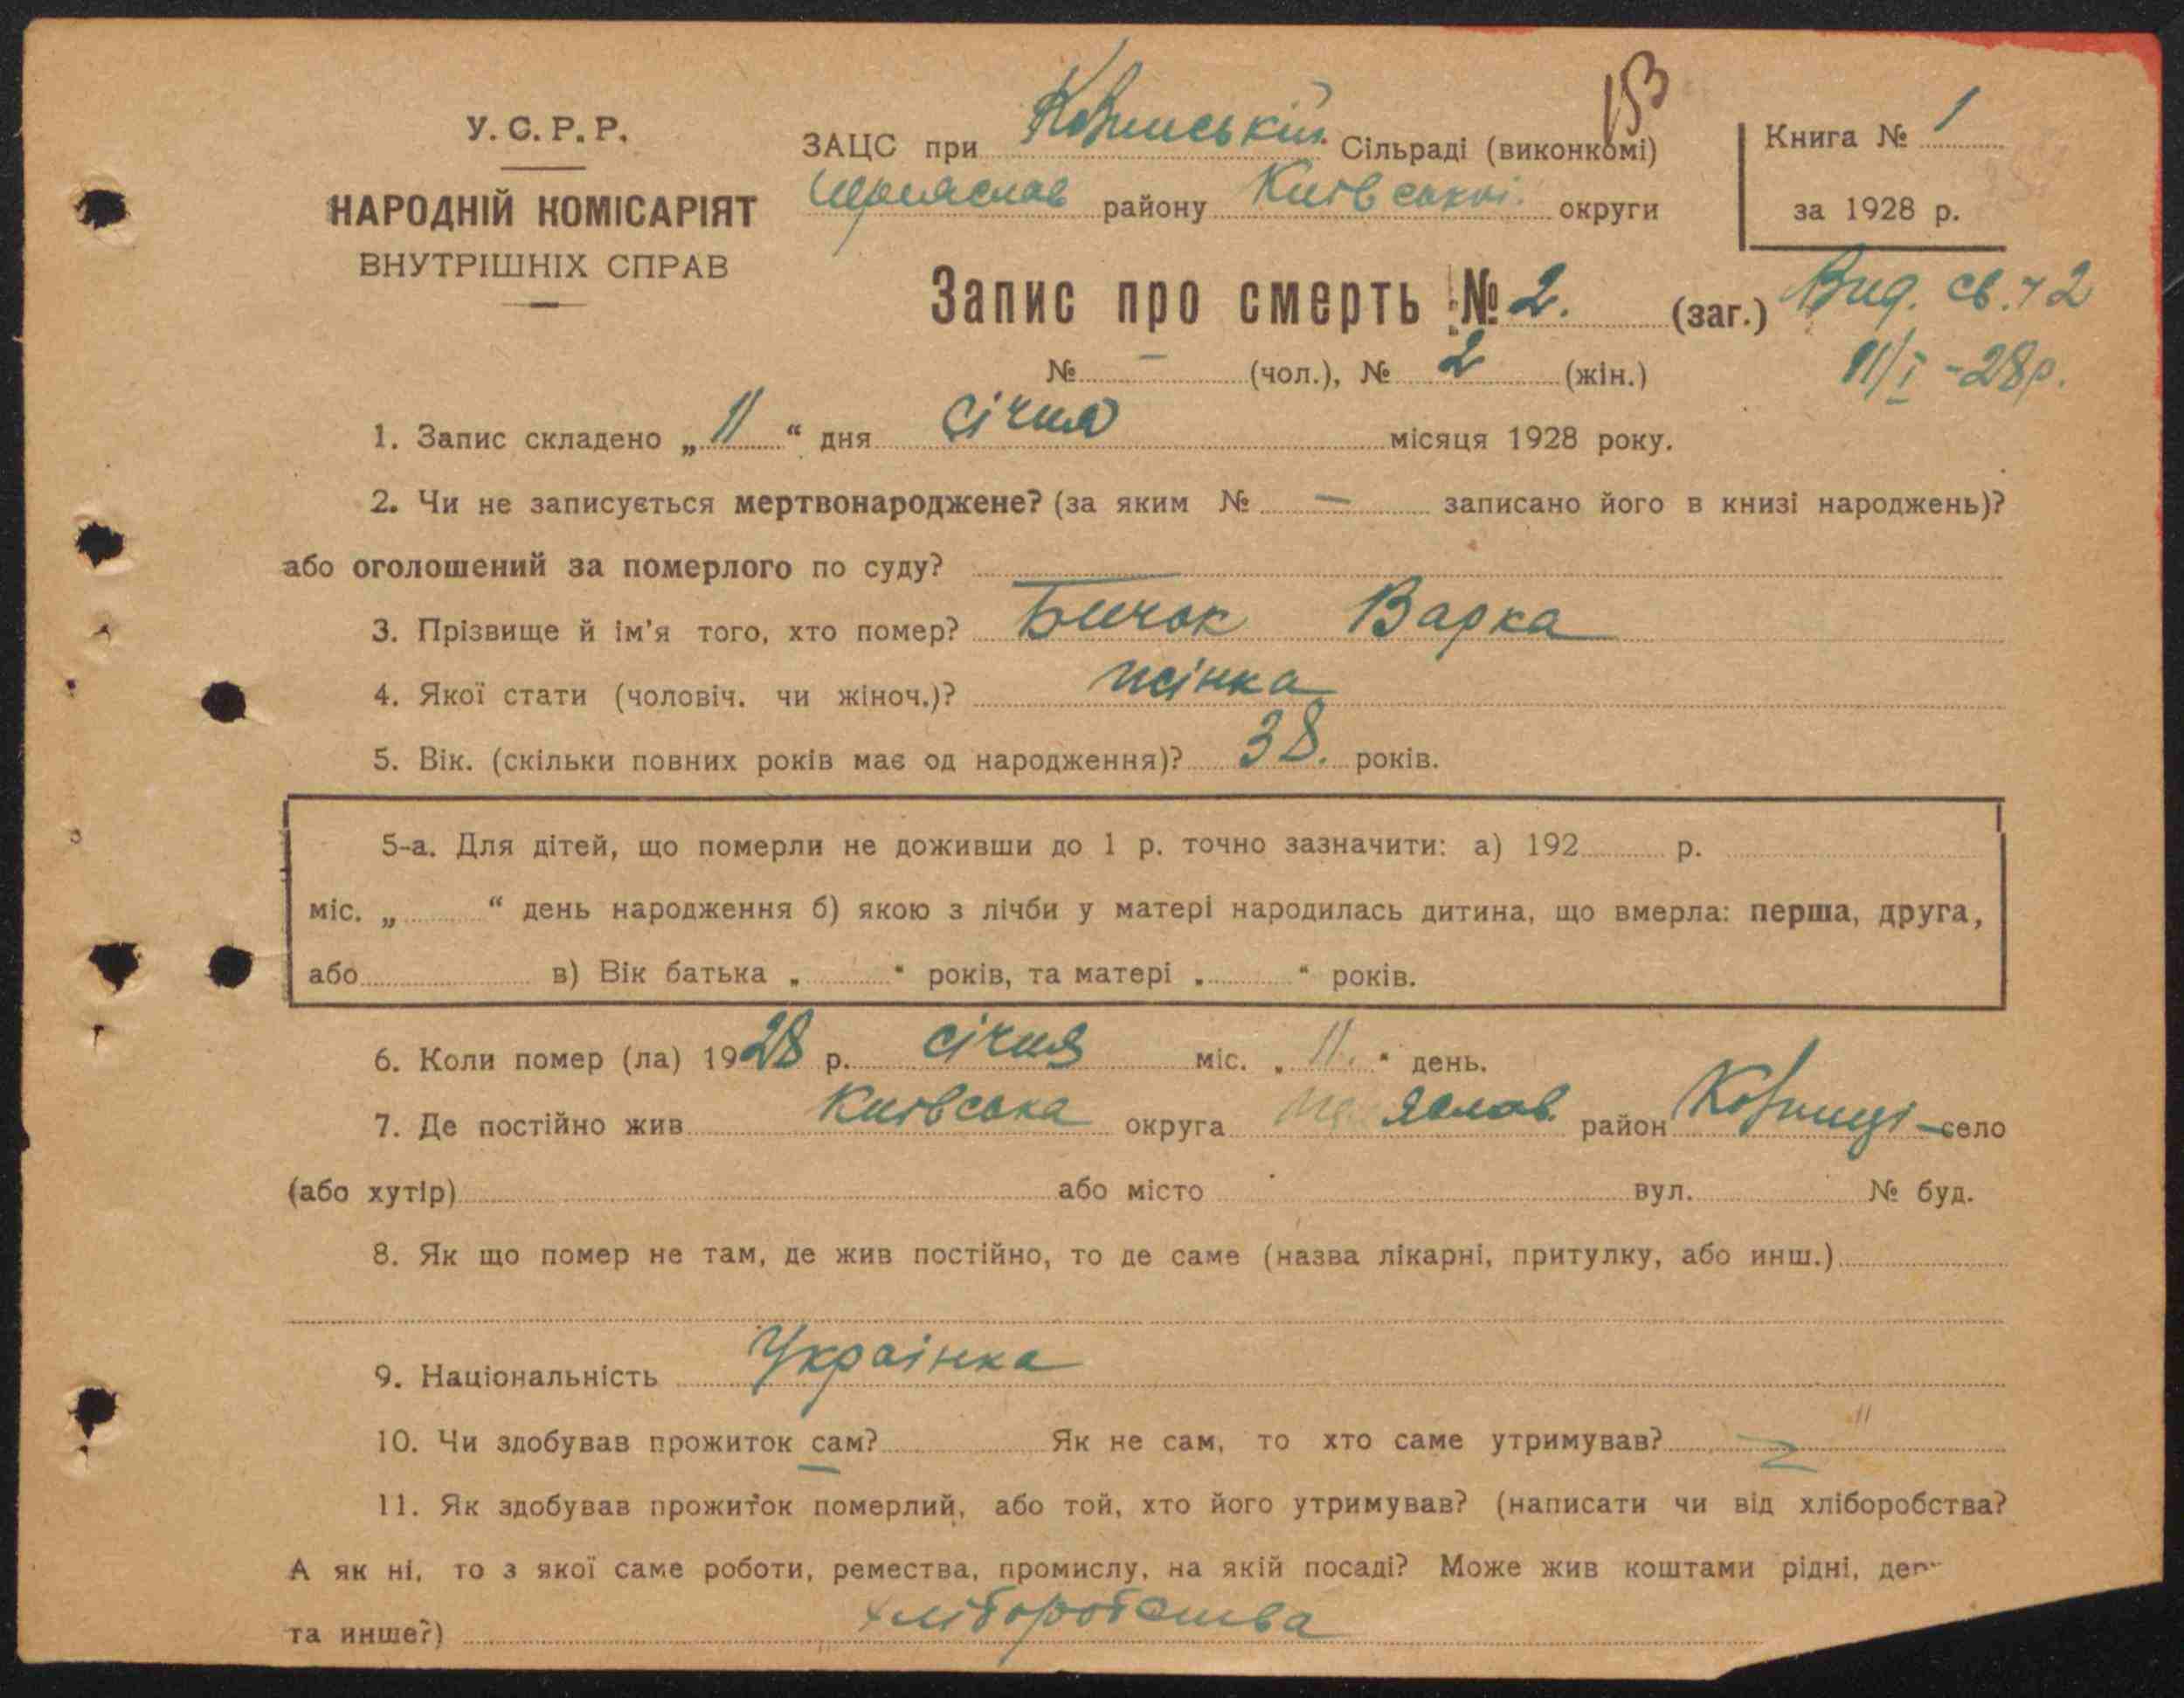 153
У. С. Р. Р.
НАРОДНІЙ КОМІСАРІЯТ
ВНУТРІШНІХ СПРАВ
ЗАЦС при Сільраді (виконкомі)
району Київської округи
Книга № 1
за 1928 р.
Запис про смерть № 2. (заг.)
Вид. св. ч 2
11/I - 28 р.
№ — (чол.), № 2 (жін.)
1. Запис складено „11“ дня січня місяця 1928 року.
2. Чи не записується мертвонароджене? (за яким № — записано його в книзі народжень)?
або оголошений за померлого по суду?
3. Прізвище й ім'я того, хто помер? Бичок Варка
4. Якої стати (чоловіч. чи жіноч.)? жінка
5. Вік. (скільки повних років має од народження)? 38. років.
5-а. Для дітей, що померли не доживши до 1 р. точно зазначити: а) 192 р.
міс. „ “ день народження б) якою з лічби у матері народилась дитина, що вмерла: перша, друга,
або в) Вік батька „ “ років, та матері „ “ років.
6. Коли помер (ла) 1928 р. січня міс. „11.“ день.
7. Де постійно жив Київська округа район село
(або хутір) або місто вул. № буд.
8. Як що помер не там, де жив постійно, то де саме (назва лікарні, притулку, або инш.)
9. Національність Українка
10. Чи здобував прожиток сам? Як не сам, то хто саме утримував?
11. Як здобував прожиток померлий, або той, хто його утримував? (написати чи від хліборобства?
А як ні, то з якої саме роботи, ремества, промислу, на якій посаді? Може жив коштами рідні, дер
та инше?) хліборобства